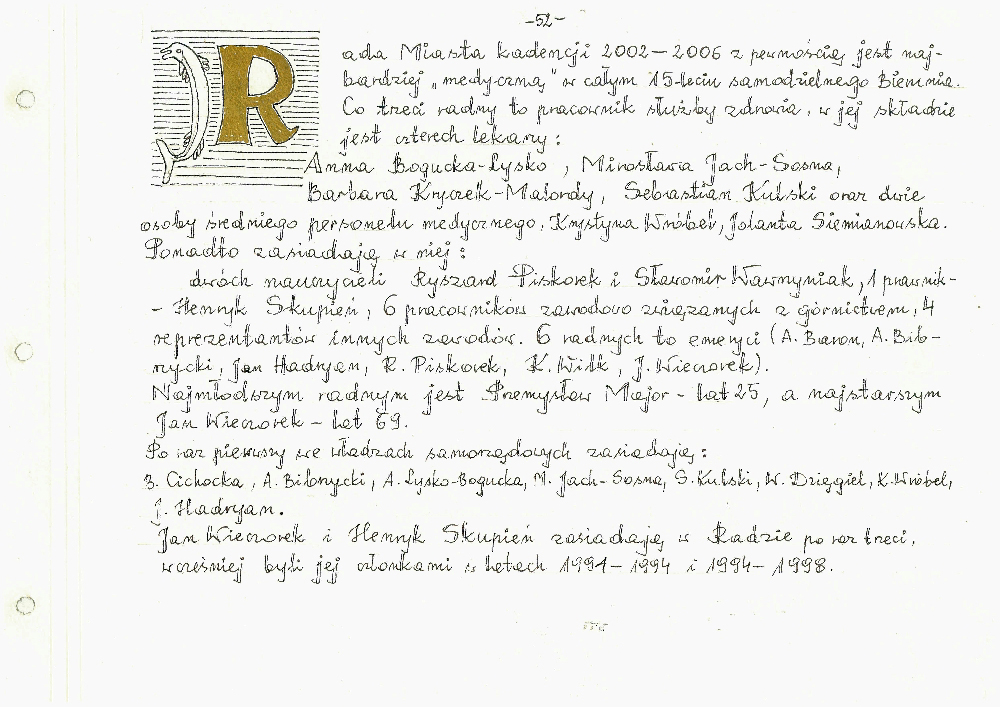 -52-
Rada Miasta kadencji 2002-2006 z pewnością jest naj-
bardziej „medyczną" w całym 15-leciu samodzielnego Bierunia.
Co trzeci radny to pracownik służby zdrowia, w jej składzie
jest czterech lekarzy:
Anna Bogucka-Łysko, Mirosława Jach-Sosna,
Barbara Kryczek-Malordy, Sebastian Kulski oraz dwie
osoby średniego personelu medycznego, Krystyna Wróbel, Jolanta Siemianowska.
Ponadto zasiadają w niej:
dwóch nauczycieli Ryszard Piskorek i Sławomir Wawrzyniak, 1 prawnik-
- Henryk Skupień, 6 pracowników zawodowo związanych z górnictwem, 4
reprezentantów innych zawodów. 6 radnych to emeryci (A. Baron, A. Bib-
rzycki, Jan Hadryan, R. Piskorek, K. Wilk, J. Wieczorek).
Najmłodszym radnym jest Przemysław Major - lat 25, a najstarszym
Jan Wieczorek - lat 69.
Po raz pierwszy we władzach samorządowych zasiadają:
B. Cichocka, A. Bibrzycki, A. Łysko-Bogucka, M. Jach-Sosna, S. Kulski, W. Dzięgiel, K. Wróbel,
J. Hadryan.
Jan Wieczorek i Henryk Skupień zasiadają w Radzie po raz trzeci,
wcześniej byli jej członkami w latach 1991-1994 i 1994-1998.